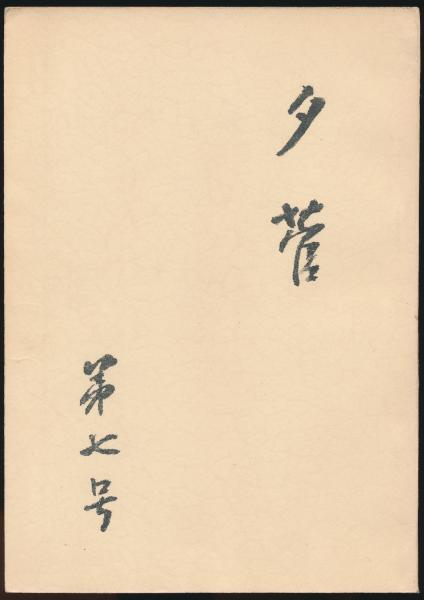 夕菅
第七号